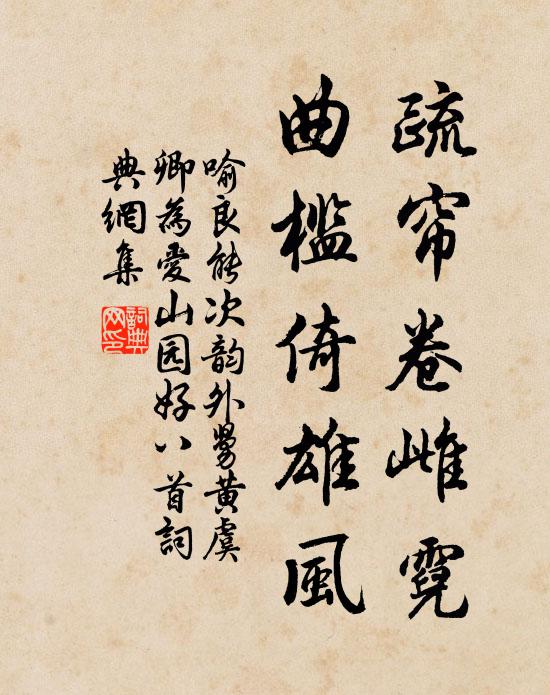 疏帘卷雌霓
曲槛倚雄风
喻良能次韵外舅黄虞
卿为爱山园好八首詞
典網集
詞典网印